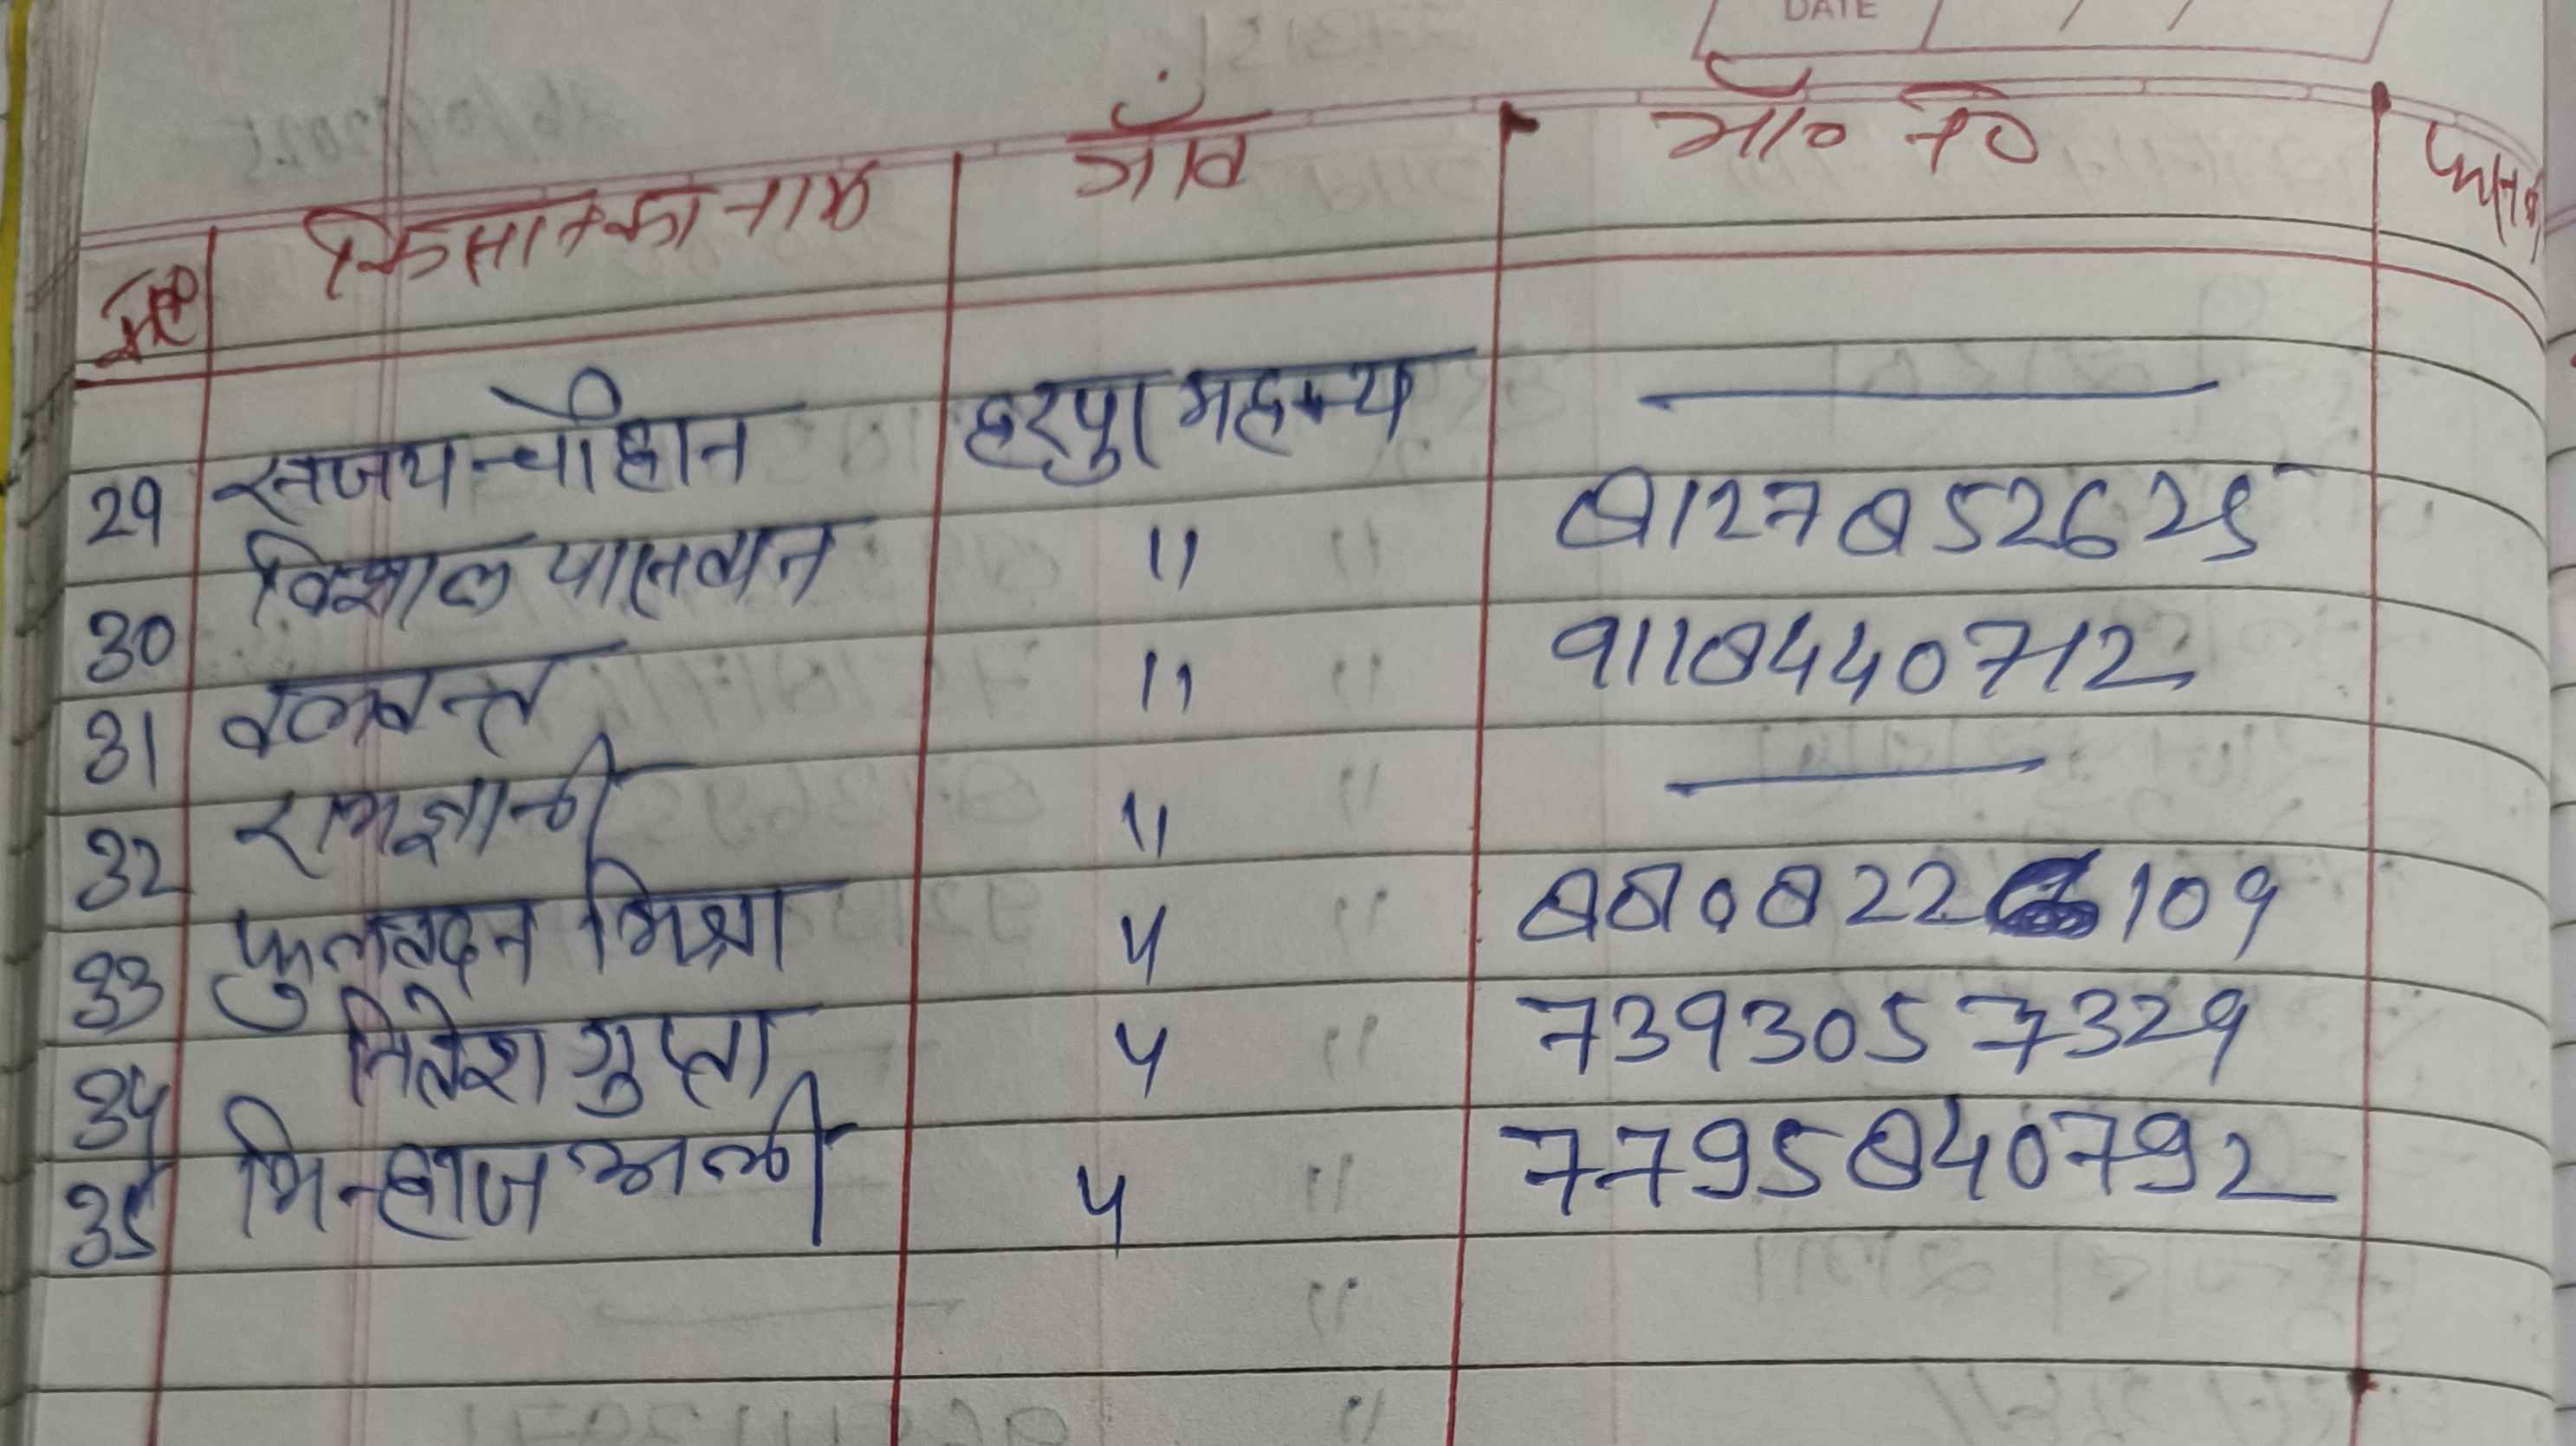 DATE / /
क्र० किसान का नाम गाँव मो० नं०
29 संजय चौहान हरपुर महन्थ ———
30 विशाल पासवान " 8127852625
31 बलवन्त " 9118440712
32 रामज्ञानी " ———
33 फुलवदन मिश्रा " 880822 109
34 नितेश गुप्ता " 7393057329
35 मिन्हाज अली " 7795840792